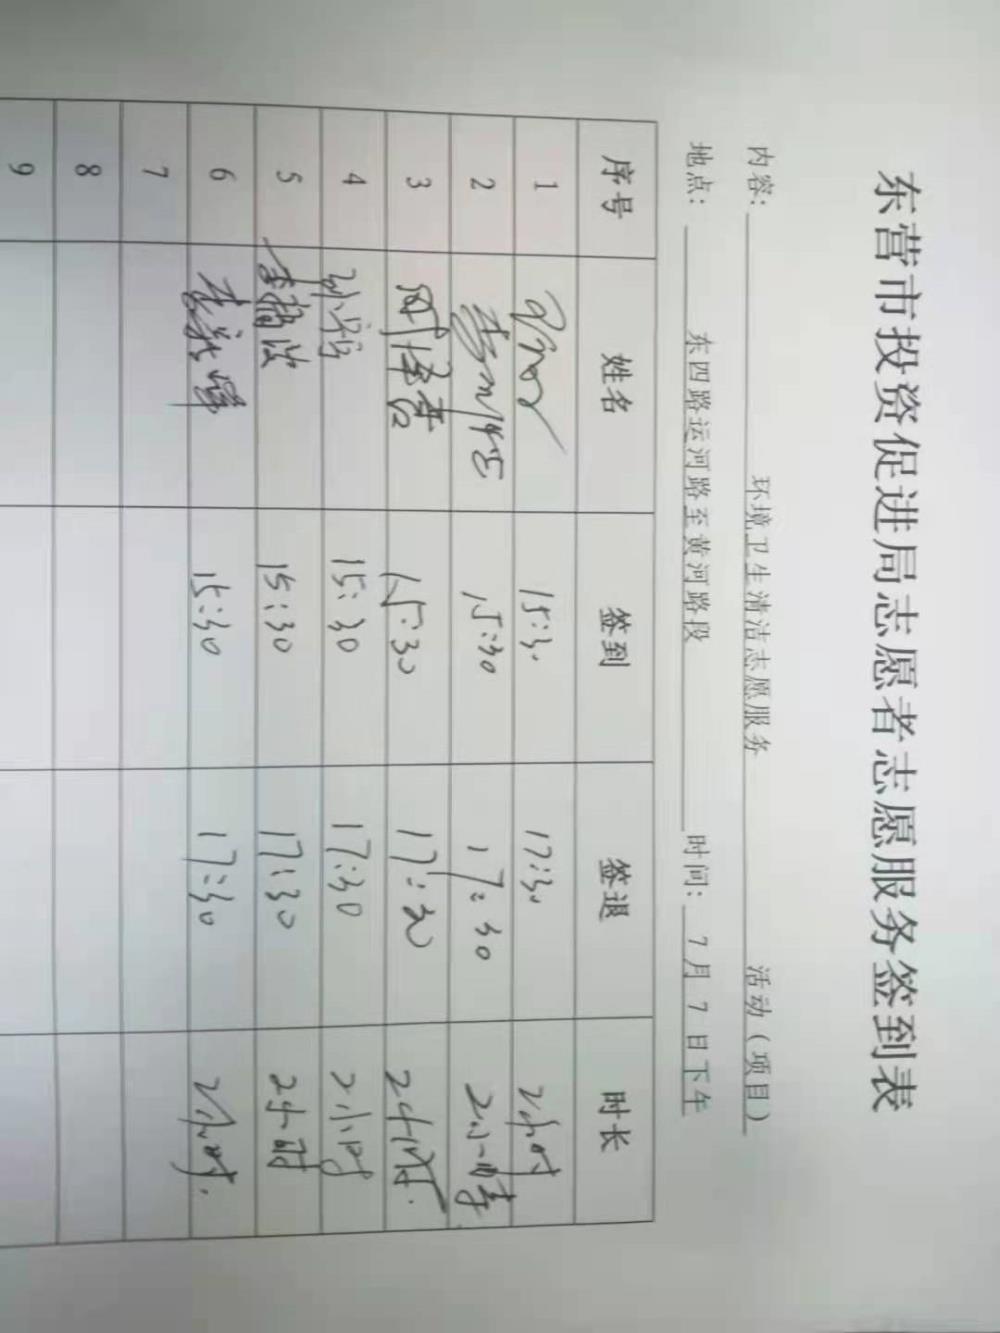 东营市投资促进局志愿者志愿服务签到表
内容: 环境卫生清洁志愿服务 活动(项目)
地点: 东四路运河路至黄河路段 时间: 7月7日下午
序号 姓名 签到 签退 时长
1 15:30 17:30 2小时
2 15:30 17:30 2小时
3 15:30 17:30 2小时
4 15:30 17:30 2小时
5 15:30 17:30 2小时
6 15:30 17:30 2小时.
7
8
9